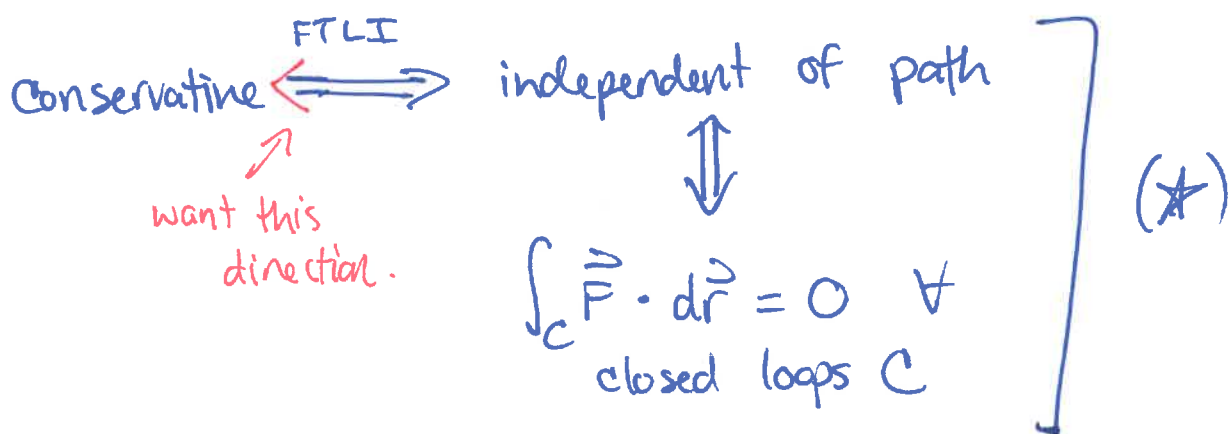 FTLI
Conservative ⟺ independent of path
⇕
want this
direction.
∫_C F⃗ · dr⃗ = 0 ∀
closed loops C
(☆)